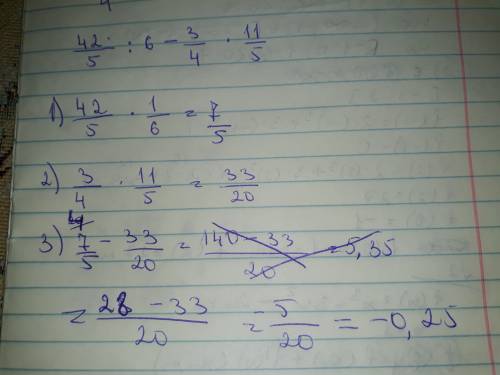 42/5 : 6 - 3/4 · 11/5
1) 42/5 · 1/6 = 7/5
2) 3/4 · 11/5 = 33/20
3) 7/5 - 33/20 = 140-33/20 = 5,35
= 28-33/20 = -5/20 = -0,25